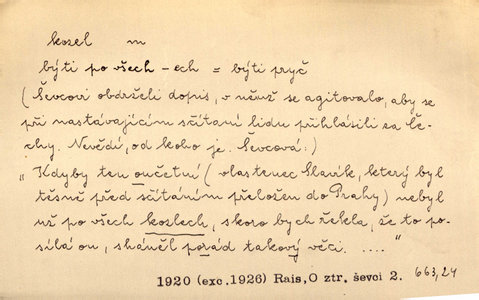 kozel m
býti po všech -ech = býti pryč
(Ševcovi obdrželi dopis, v němž se agitovalo, aby se
při nastávajícím sčítání lidu přihlásili za Če-
chy. Nevědí, od koho je. Ševcová:)
"Kdyby ten oučetní (vlastenec Slavík, který byl
těsně před sčítáním přeložen do Prahy) nebyl
už po všech kozlech, skoro bych řekla, že to po-
sílá on, sháněl pořád takový věci. ...."
1920 (exc.1926) Rais, O ztr. ševci 2. 663,24